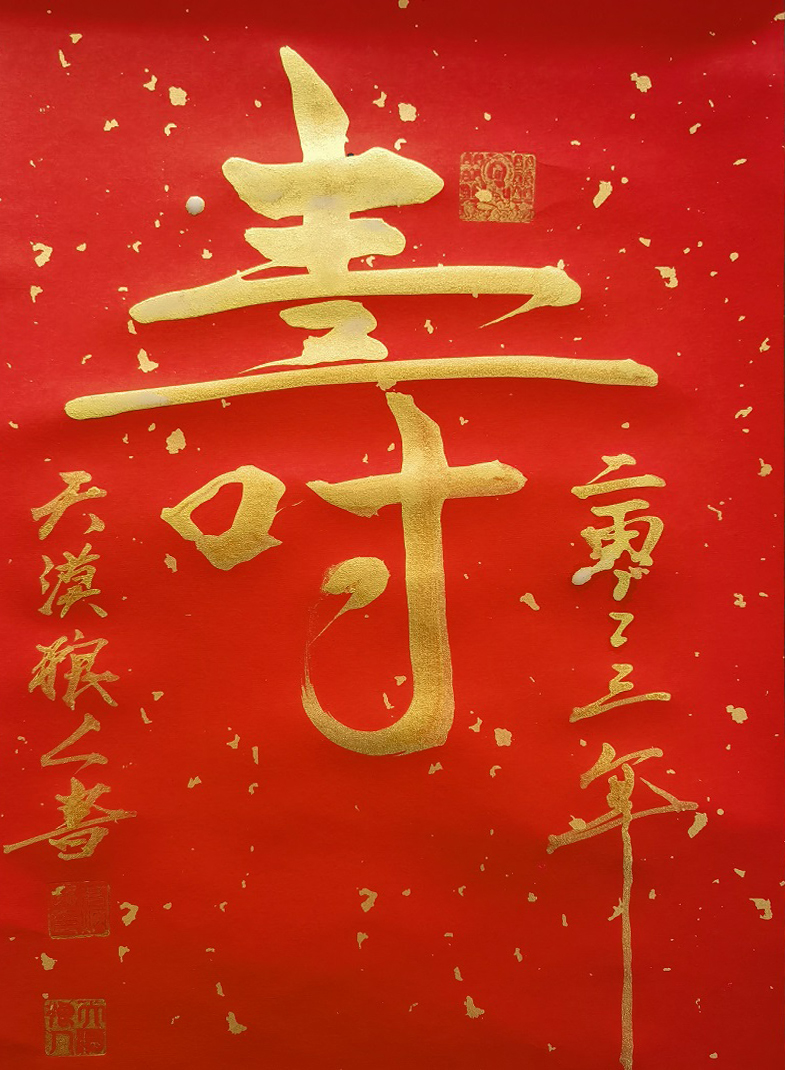 壽
二零二三年
天漠狼人書